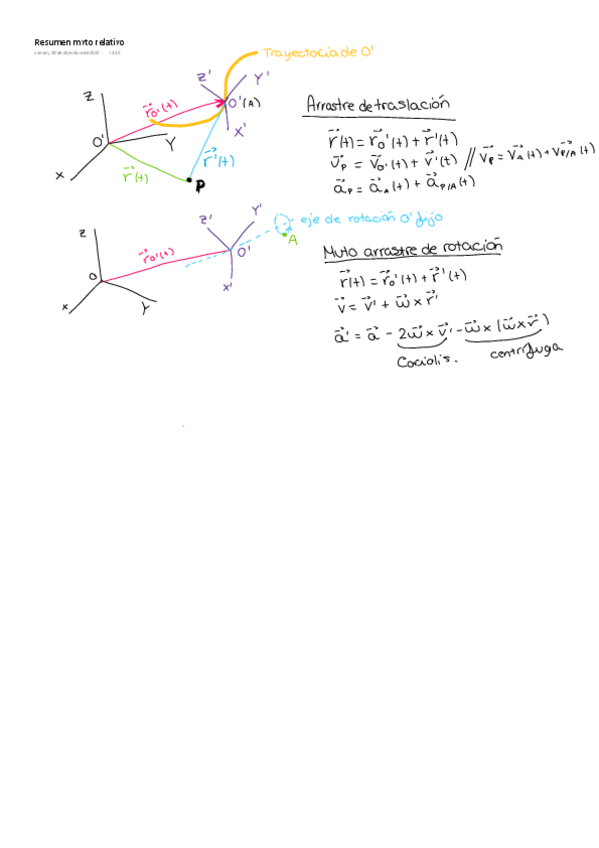 Resumen mvto relativo
Trayectoria de O'
Z
Z'
Y'
r⃗o'(t)
O'(A)
X'
O'
Y
r⃗'(t)
X
r⃗(t)
P
Arrastre de traslación
r⃗(t) = r⃗o'(t) + r⃗'(t)
v⃗p = v⃗o'(t) + v⃗'(t) // v⃗p = v⃗A(t) + v⃗P/A(t)
a⃗p = a⃗A(t) + a⃗P/A(t)
Z
Z'
Y'
eje de rotación O' fijo
A
r⃗o'(t)
O'
O
X'
X
Y
Mvto arrastre de rotación
r⃗(t) = r⃗o'(t) + r⃗'(t)
v⃗ = v⃗' + ω⃗ x r⃗'
a⃗' = a⃗ - 2ω⃗ x v⃗' - ω⃗ x (ω⃗ x r⃗')
Coriolis.
centrífuga